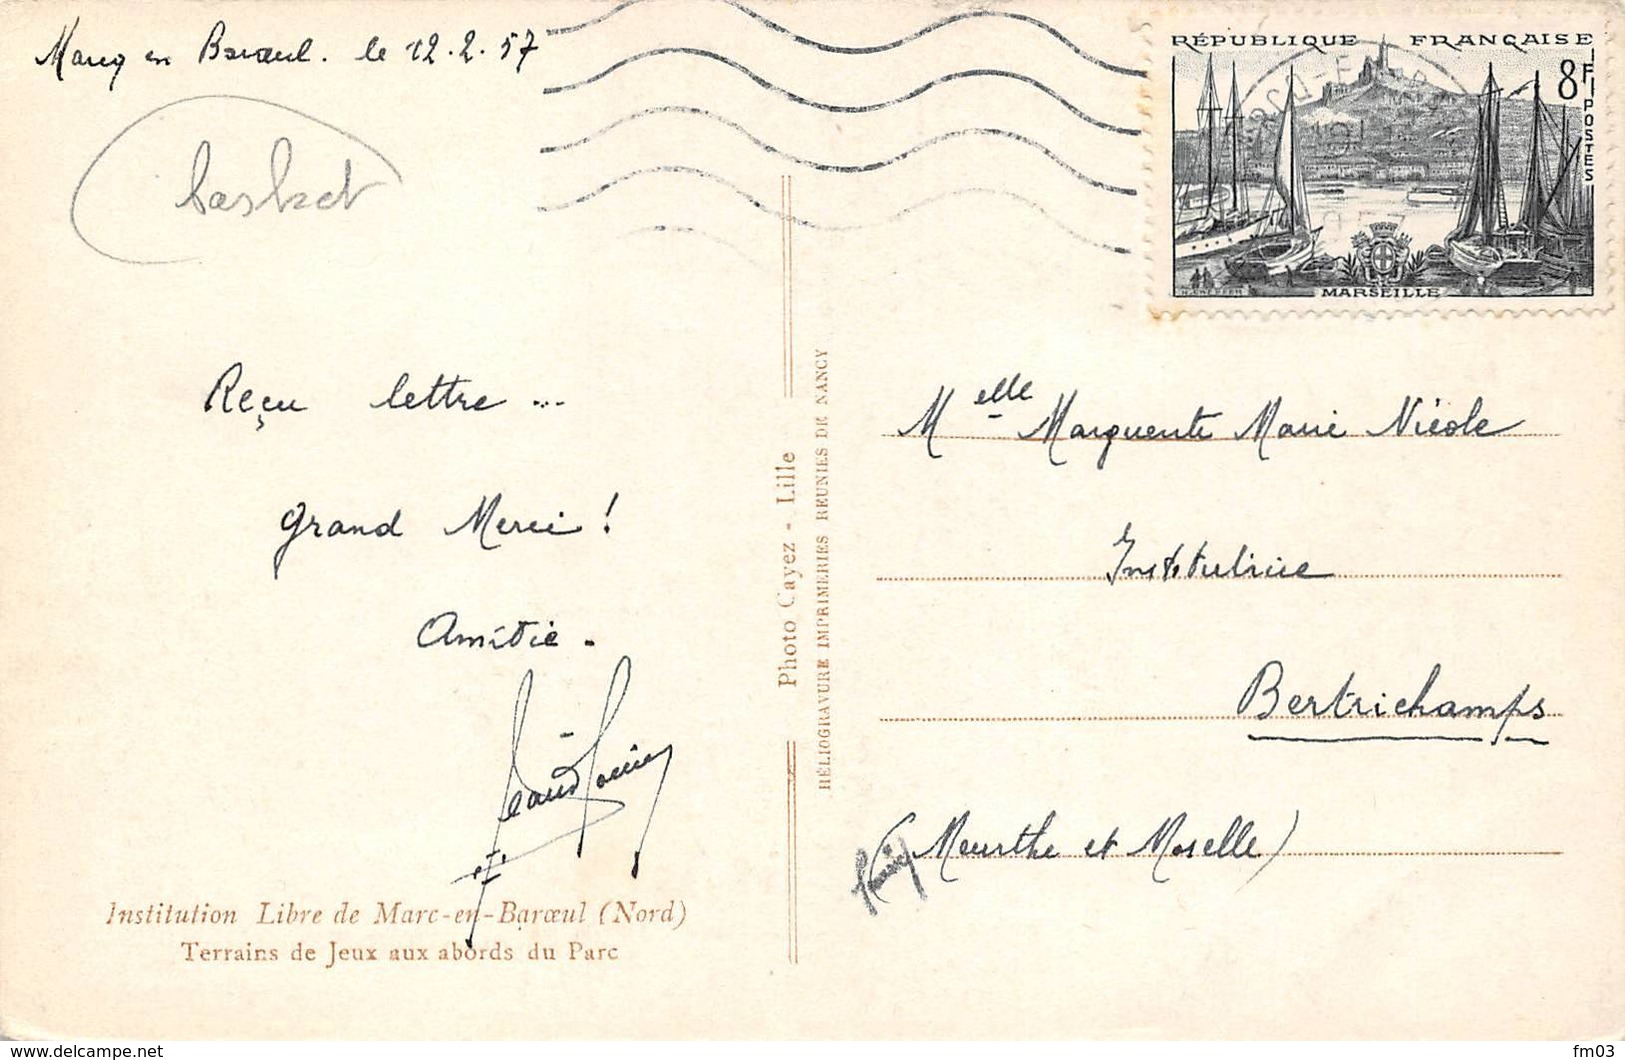 Marcq en Barœul. le 12.2.57
basket
Reçu lettre...
Grand Merci !
Amitié.
Institution Libre de Marc-en-Barœul (Nord)
Terrains de Jeux aux abords du Parc
Photo Cayez - Lille
HÉLIOGRAVURE IMPRIMERIES REUNIES DE NANCY
RÉPUBLIQUE FRANÇAISE
8F
POSTES
MARSEILLE
Melle Marguerite Marie Nicole
Institutrice
Bertrichamps
(Meurthe et Moselle)
fm03